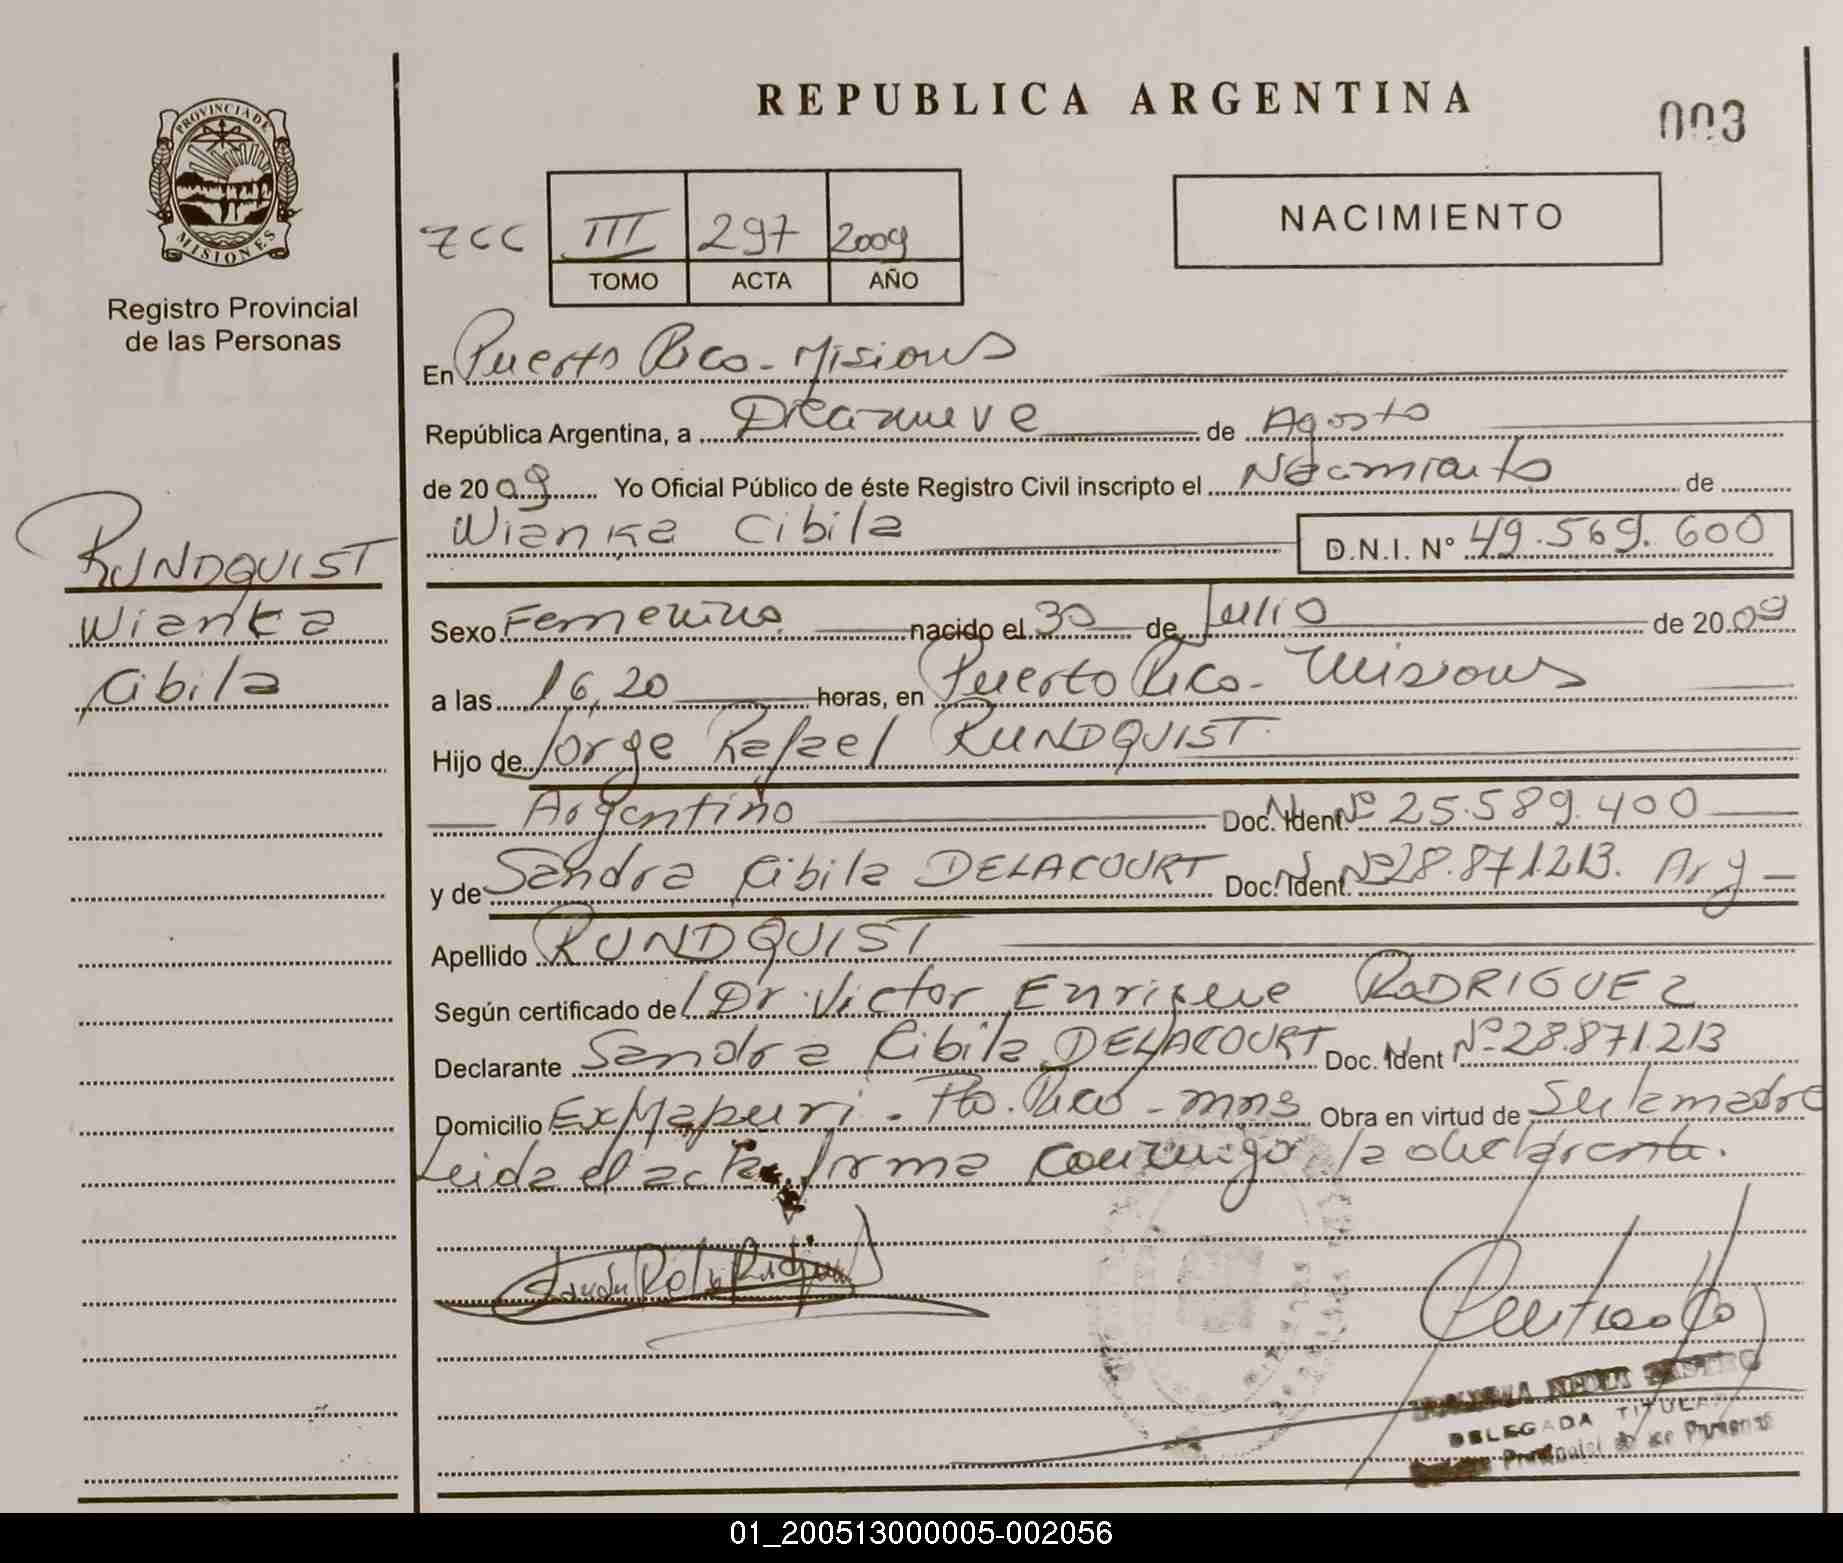 PROVINCIA DE
MISIONES
Registro Provincial
de las Personas
REPUBLICA ARGENTINA
003
ZCC III 297 2009
TOMO ACTA AÑO
NACIMIENTO
En Puerto Rico - Misiones
República Argentina, a Diecinueve de Agosto
de 2009 Yo Oficial Público de éste Registro Civil inscripto el Nacimiento de
Wianka Cibila D.N.I. Nº 49.569.600
RUNDQUIST
Wianka
Cibila
Sexo Femenino nacido el 30 de Julio de 2009
a las 16,20 horas, en Puerto Rico - Misiones
Hijo de Jorge Rafael RUNDQUIST
Argentino Doc. Ident. Nº 25.589.400
y de Sandra Cibila DELACOURT Doc. Ident. Nº 28.871.213. Arg
Apellido RUNDQUIST
Según certificado de Dr. Victor Enrique RODRIGUEZ
Declarante Sandra Cibila DELACOURT Doc. Ident Nº 28.871.213
Domicilio Ex Mapuri - Pto. Rico - mns Obra en virtud de Ser la madre
Leida el acta firma conmigo la declarante.
DELEGADA TITULAR
Provincial de las Personas
01_200513000005-002056